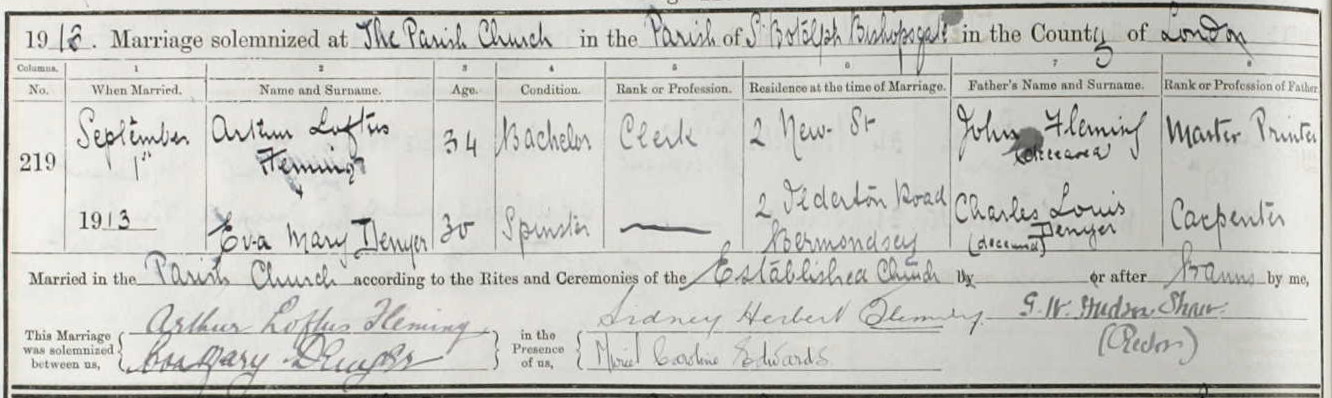 1913. Marriage solemnized at The Parish Church in the Parish of St Botolph Bishopsgate in the County of London
Columns. 1 2 3 4 5 6 7 8
No. When Married. Name and Surname. Age. Condition. Rank or Profession. Residence at the time of Marriage. Father's Name and Surname. Rank or Profession of Father
219 September 1st 1913
Arthur Loftus Fleming 34 Bachelor Clerk 2 New St John Fleming (deceased) Master Printer
Eva Mary Denyer 30 Spinster — 2 Ilderton Road Bermondsey Charles Louis Denyer (deceased) Carpenter
Married in the Parish Church according to the Rites and Ceremonies of the Established Church by or after Banns by me,
This Marriage was solemnized between us,
Arthur Loftus Fleming
Eva Mary Denyer
in the Presence of us,
Sidney Herbert Fleming
Muriel Caroline Edwards
G. W. Hudson Shaw
(Rector)